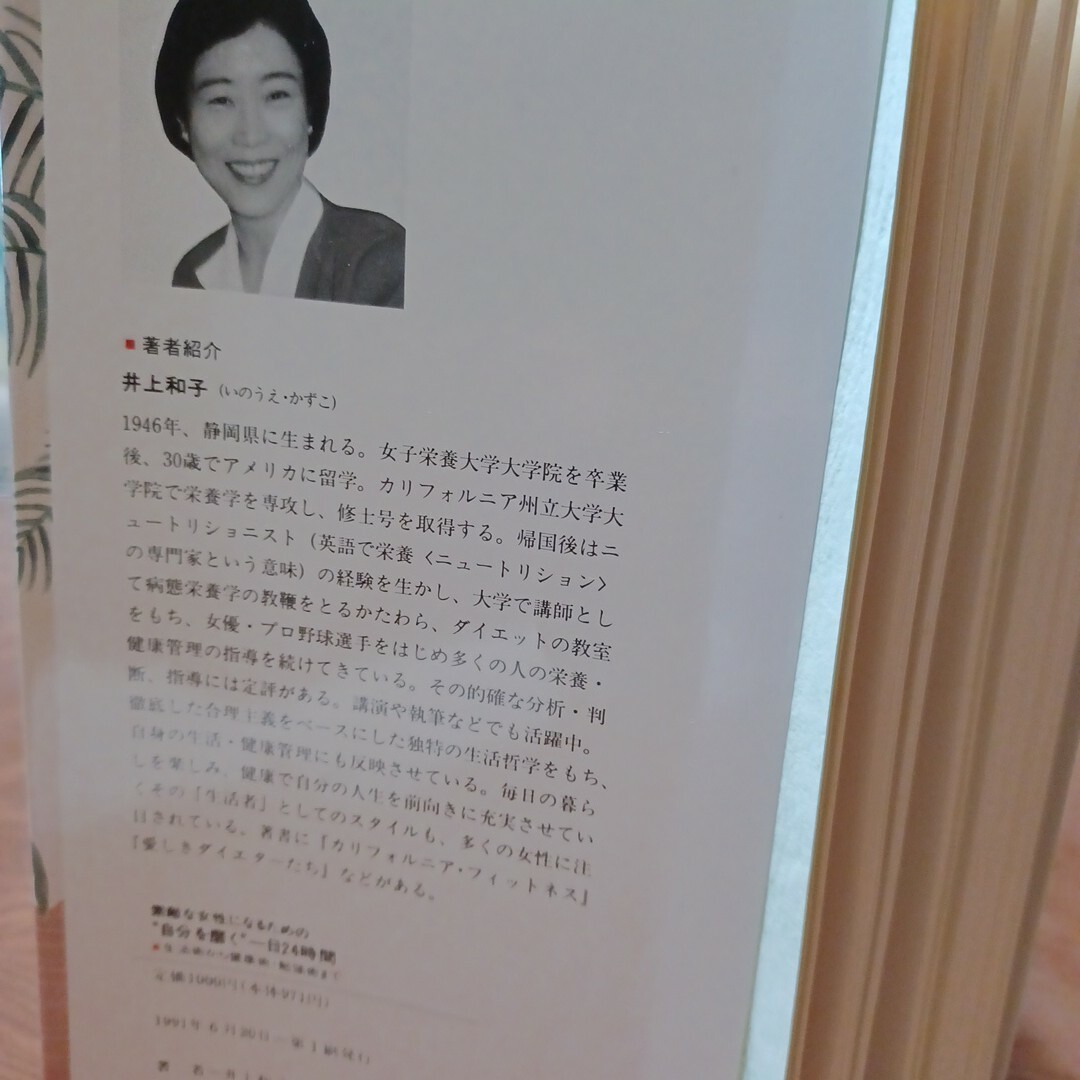 ■著者紹介
井上和子（いのうえ・かずこ）
1946年、静岡県に生まれる。女子栄養大学大学院を卒業
後、30歳でアメリカに留学。カリフォルニア州立大学大
学院で栄養学を専攻し、修士号を取得する。帰国後はニ
ュートリショニスト（英語で栄養〈ニュートリション〉
の専門家という意味）の経験を生かし、大学で講師とし
て病態栄養学の教鞭をとるかたわら、ダイエットの教室
をもち、女優・プロ野球選手をはじめ多くの人の栄養・
健康管理の指導を続けてきている。その的確な分析・判
断、指導には定評がある。講演や執筆などでも活躍中。
徹底した合理主義をベースにした独特の生活哲学をもち、
自身の生活・健康管理にも反映させている。毎日の暮ら
しを楽しみ、健康で自分の人生を前向きに充実させてい
くその「生活者」としてのスタイルも、多くの女性に注
目されている。著書に『カリフォルニア・フィットネス』
『愛しきダイエターたち』などがある。
素敵な女性になるための
“自分を磨く”一日24時間
定価1000円（本体971円）
1991年6月20日 第1刷発行